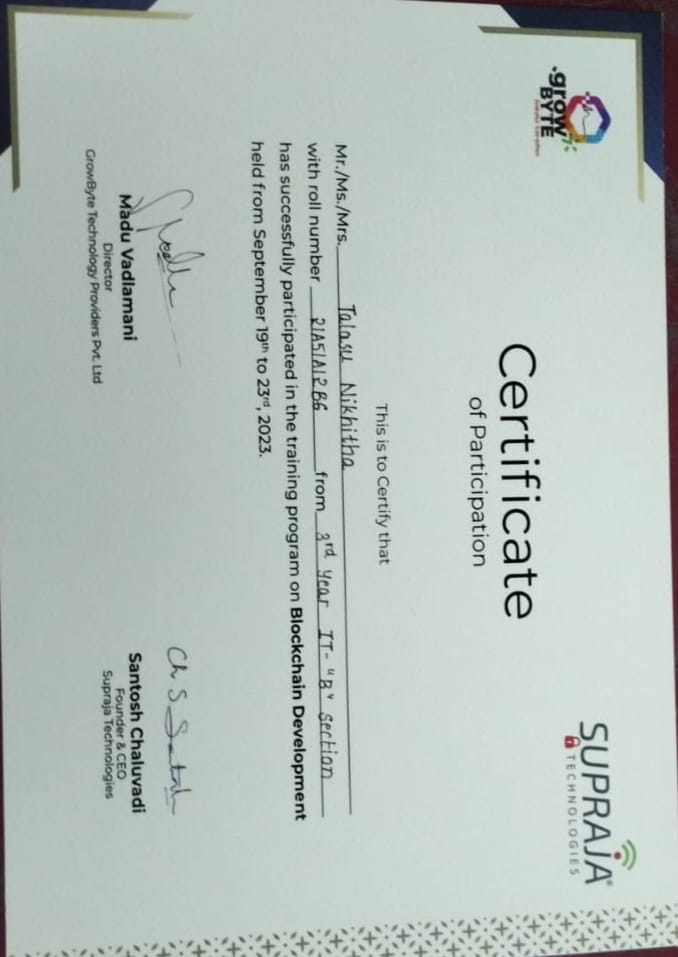 grow
BYTE
SUPRAJA
TECHNOLOGIES
Certificate
of Participation
This is to Certify that
Mr./Ms./Mrs. Talasu Nikhitha
with roll number 21A51A12B6 from 3rd Year IT- "B" Section
has successfully participated in the training program on Blockchain Development
held from September 19th to 23rd, 2023.
Ch S Santosh
Madu Vadlamani
Director
GrowByte Technology Providers Pvt. Ltd
Santosh Chaluvadi
Founder & CEO
Supraja Technologies